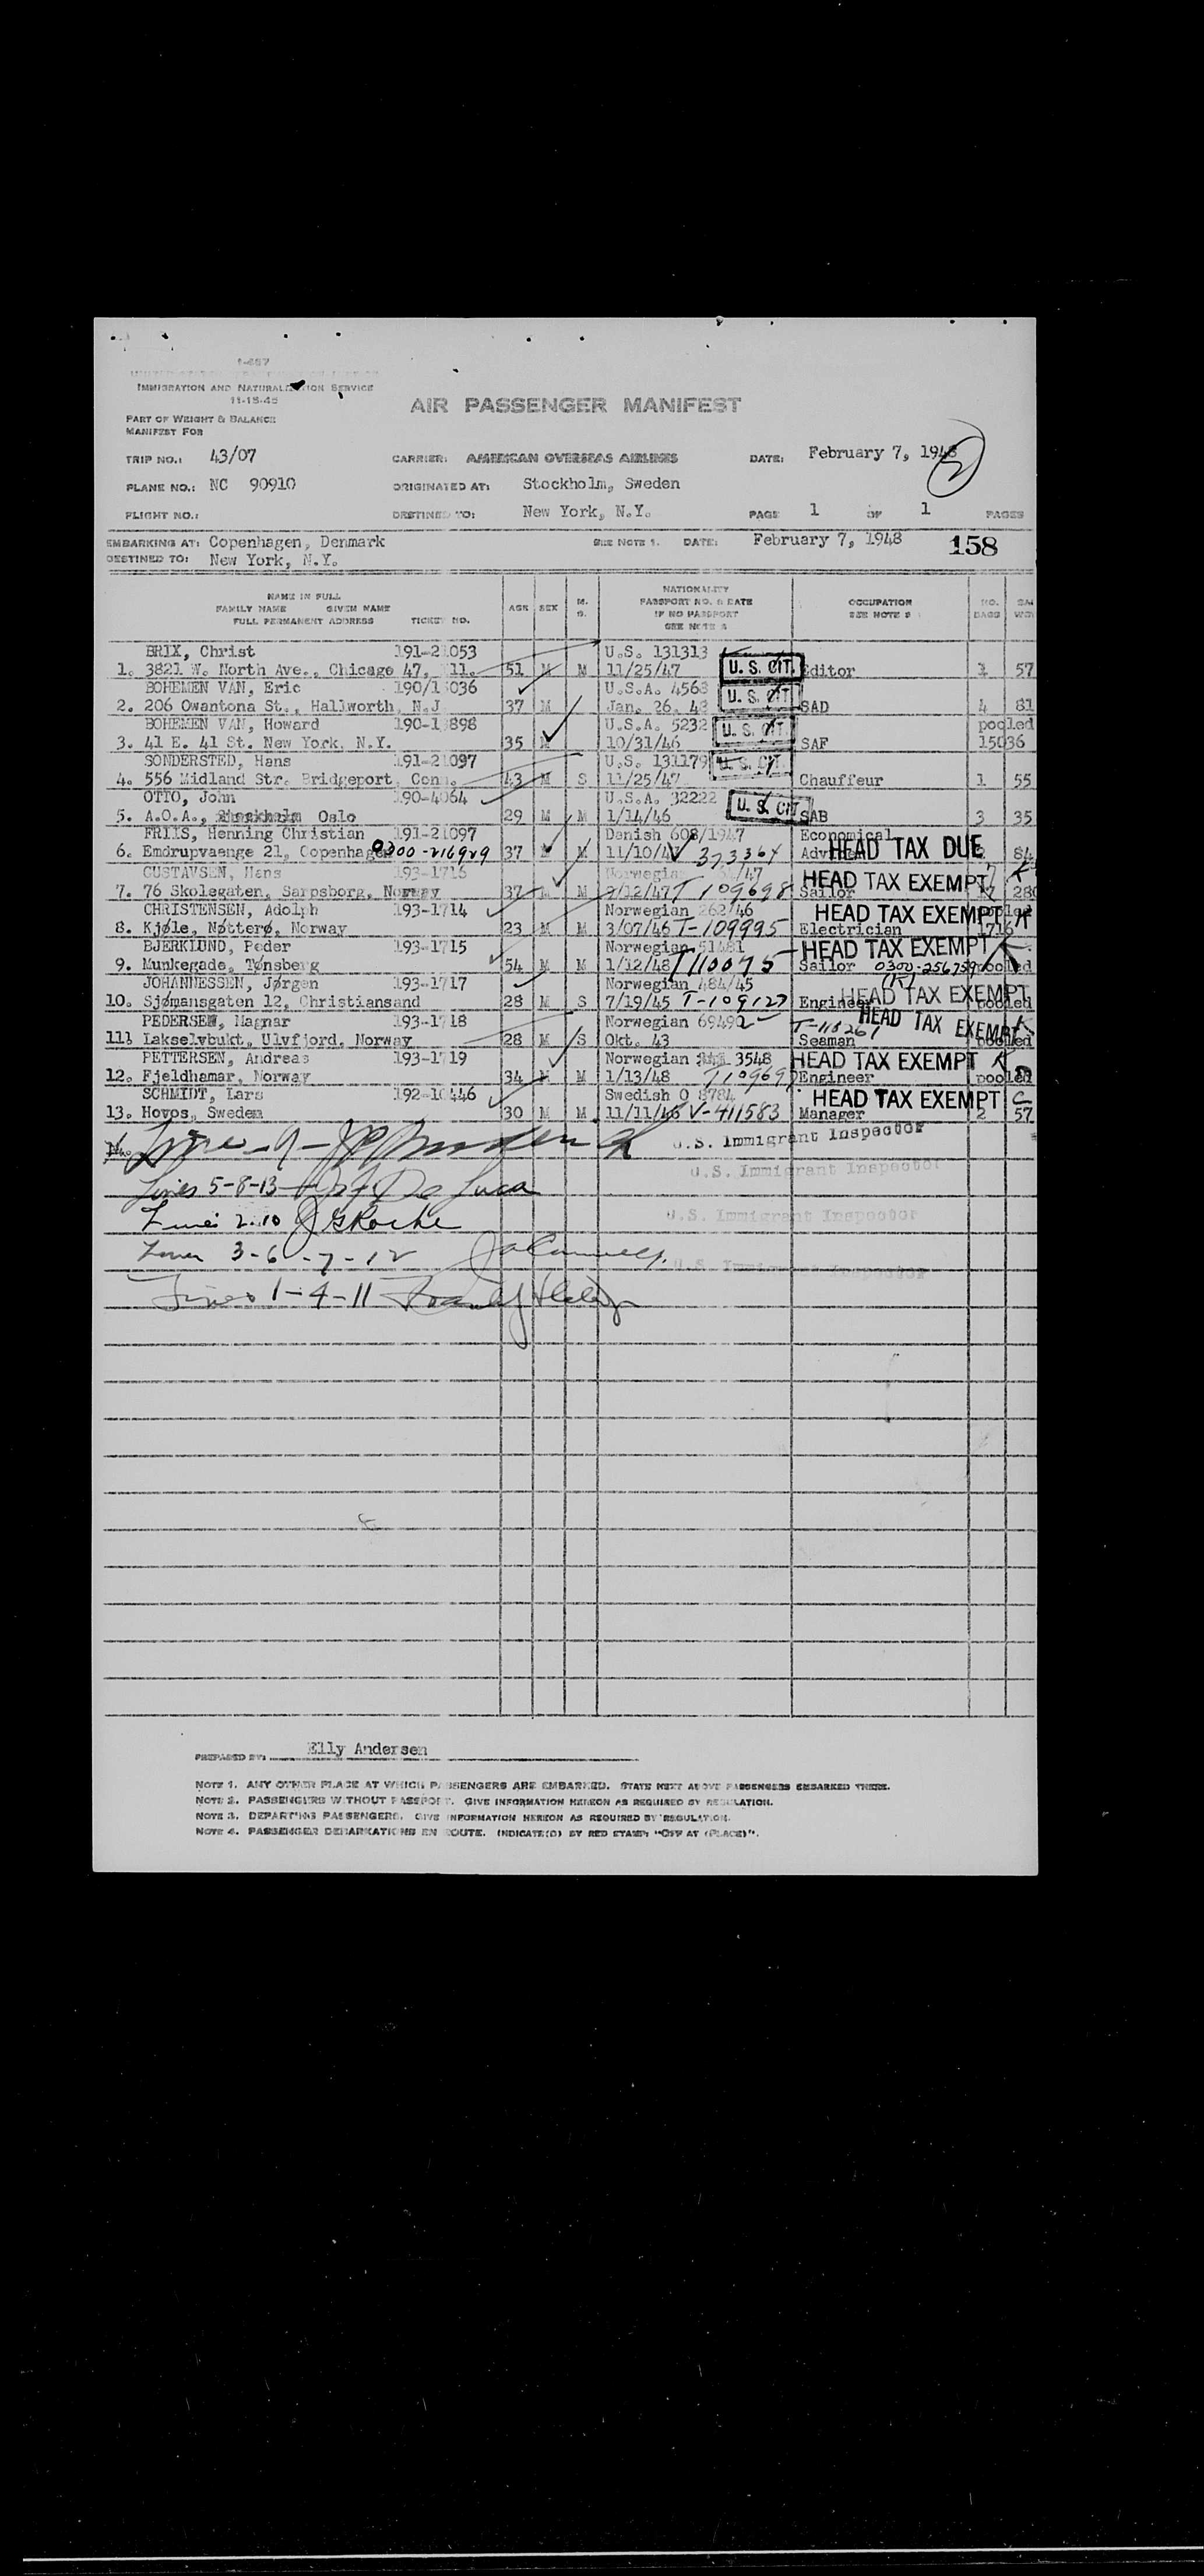 1-467
IMMIGRATION AND NATURALIZATION SERVICE
11-15-45
AIR PASSENGER MANIFEST
PART OF WEIGHT & BALANCE
MANIFEST FOR
TRIP NO.: 43/07 CARRIER: AMERICAN OVERSEAS AIRLINES DATE: February 7, 1948
2
PLANE NO.: NC 90910 ORIGINATED AT: Stockholm, Sweden
FLIGHT NO.: DESTINED TO: New York, N.Y. PAGE 1 OF 1 PAGES
EMBARKING AT: Copenhagen, Denmark SEE NOTE 1. DATE: February 7, 1948 158
DESTINED TO: New York, N.Y.
NAME IN FULL
FAMILY NAME GIVEN NAME
FULL PERMANENT ADDRESS TICKET NO. AGE SEX M. S. NATIONALITY PASSPORT NO. & DATE IF NO PASSPORT SEE NOTE OCCUPATION SEE NOTE NO. BAGS
BRIX, Christ 191-21053 U.S. 131313
1. 3821 W. North Ave., Chicago 47, Ill. 51 M M 11/25/47 U. S. CIT. Editor 1 57
BOHEMEN VAN, Eric 190/15036 U.S.A. 4568
2. 206 Owantona St., Hallworth, N.J 37 M Jan. 26. 48 U. S. CIT. SAD 4 81
BOHEMEN VAN, Howard 190-13898 U.S.A. 5232 pooled
3. 41 E. 41 St. New York, N.Y. 35 M 10/31/46 U. S. CIT. SAF 15036
SONDERSTED, Hans 191-21097 U.S. 131179
4. 556 Midland Str. Bridgeport, Conn. 43 M S 11/25/47 U. S. CIT. Chauffeur 1 55
OTTO, John 190-4064 U.S.A. 32222
5. A.O.A., Oslo 29 M M 1/14/46 U. S. CIT. SAB 3 35
FRIIS, Henning Christian 191-21097 Danish 608/1947 Economical
6. Emdrupvaenge 21, Copenhagen 0300-216929 37 M M 11/10/47 V 373364 HEAD TAX DUE 84
GUSTAVSEN, Hans 193-1716 Norwegian /47
7. 76 Skolegaten, Sarpsborg, Norway 37 M M /12/47 T 109698 Sailor HEAD TAX EXEMPT 280
CHRISTENSEN, Adolph 193-1714 Norwegian 262/46 HEAD TAX EXEMPT pooled
8. Kjøle, Nøtterø, Norway 23 M M 3/07/46 T-109995 Electrician 1716
BJERKLUND, Peder 193-1715 Norwegian 51481 HEAD TAX EXEMPT
9. Munkegade, Tønsberg 54 M M 1/12/48 T110075 Sailor 0300-256759 pooled
JOHANNESSEN, Jørgen 193-1717 Norwegian 484/45
10. Sjømansgaten 12, Christiansand 28 M S 7/19/45 T-109127 Engineer HEAD TAX EXEMPT pooled
PEDERSEN, Magnar 193-1718 Norwegian 69492 HEAD TAX EXEMPT
11. Lakselvbukt, Ulvfjord, Norway 28 M S Okt. 43 Seaman pooled
PETTERSEN, Andreas 193-1719 Norwegian 3548 HEAD TAX EXEMPT
12. Fjeldhamar, Norway 34 M M 1/13/48 T109697 Engineer pooled
SCHMIDT, Lars 192-10446 Swedish O 8784 HEAD TAX EXEMPT
13. Hovos, Sweden 30 M M 11/11/46 V-411583 Manager 2 57
U.S. Immigrant Inspector
U.S. Immigrant Inspector
Lines 5-8-13 De Luca
Lines 2-10 J G Roche U.S. Immigrant Inspector
Lines 3-6-7-12 U.S. Immigrant Inspector
Lines 1-4-11
PREPARED BY: Elly Andersen
NOTE 1. ANY OTHER PLACE AT WHICH PASSENGERS ARE EMBARKED. STATE NEXT ABOVE PASSENGERS EMBARKED THERE.
NOTE 2. PASSENGERS WITHOUT PASSPORT. GIVE INFORMATION HEREON AS REQUIRED BY REGULATION.
NOTE 3. DEPARTING PASSENGERS. GIVE INFORMATION HEREON AS REQUIRED BY REGULATION.
NOTE 4. PASSENGER DEBARKATIONS EN ROUTE. INDICATE(D) BY RED STAMP "OFF AT (PLACE)".